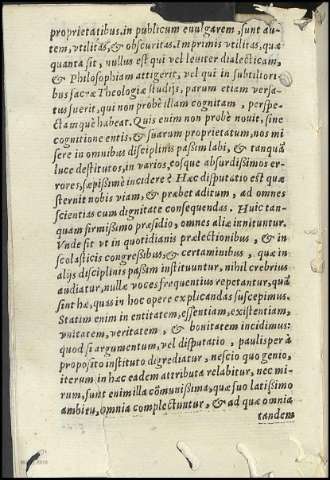 proprietatibus, in publicum evulgarem, sunt au-
tem, vtilitas, & obscuritas. Imprimis vtilitas, quæ
quanta sit, nullus est qui vel leuiter dialecticam,
& Philosophiam attigerit, vel qui in subtiliori-
bus sacræ Theologiæ studijs, parum etiam versa-
tus fuerit, qui non probè illam cognitam, perspe-
ctamquè habeat. Quis enim non probè nouit, sine
cognitione entis, & suarum proprietatum, nos mi
sere in omnibus disciplinis passim labi, & tanquã
luce destitutos, in varios, eosque absurdissimos er-
rores, sæpissimè incidere? Hæc disputatio est quæ
sternit nobis viam, & præbet aditum, ad omnes
scientias cum dignitate consequendas. Huic tan-
quam firmissimo præsidio, omnes aliæ innituntur.
Vnde fit vt in quotidianis prælectionibus, & in
scolasticis congressibus, & certaminibus, quæ in
alijs disciplinis passim instituuntur, nihil crebrius
audiatur, nullæ voces frequentius repetantur, quã
sint hæ, quas in hoc opere explicandas suscepimus.
Statim enim in entitatem, essentiam, existentiam,
vnitatem, veritatem, & bonitatem incidimus:
quod si argumentum, vel disputatio, paulisper à
proposito instituto digrediatur, nescio quo genio,
iterum in hac eadem attributa relabitur, nec mi-
rum, sunt enim illa cõmunissima, quæ suo latissimo
ambitu, omnia complectuntur, & ad quæ omnia
tandem